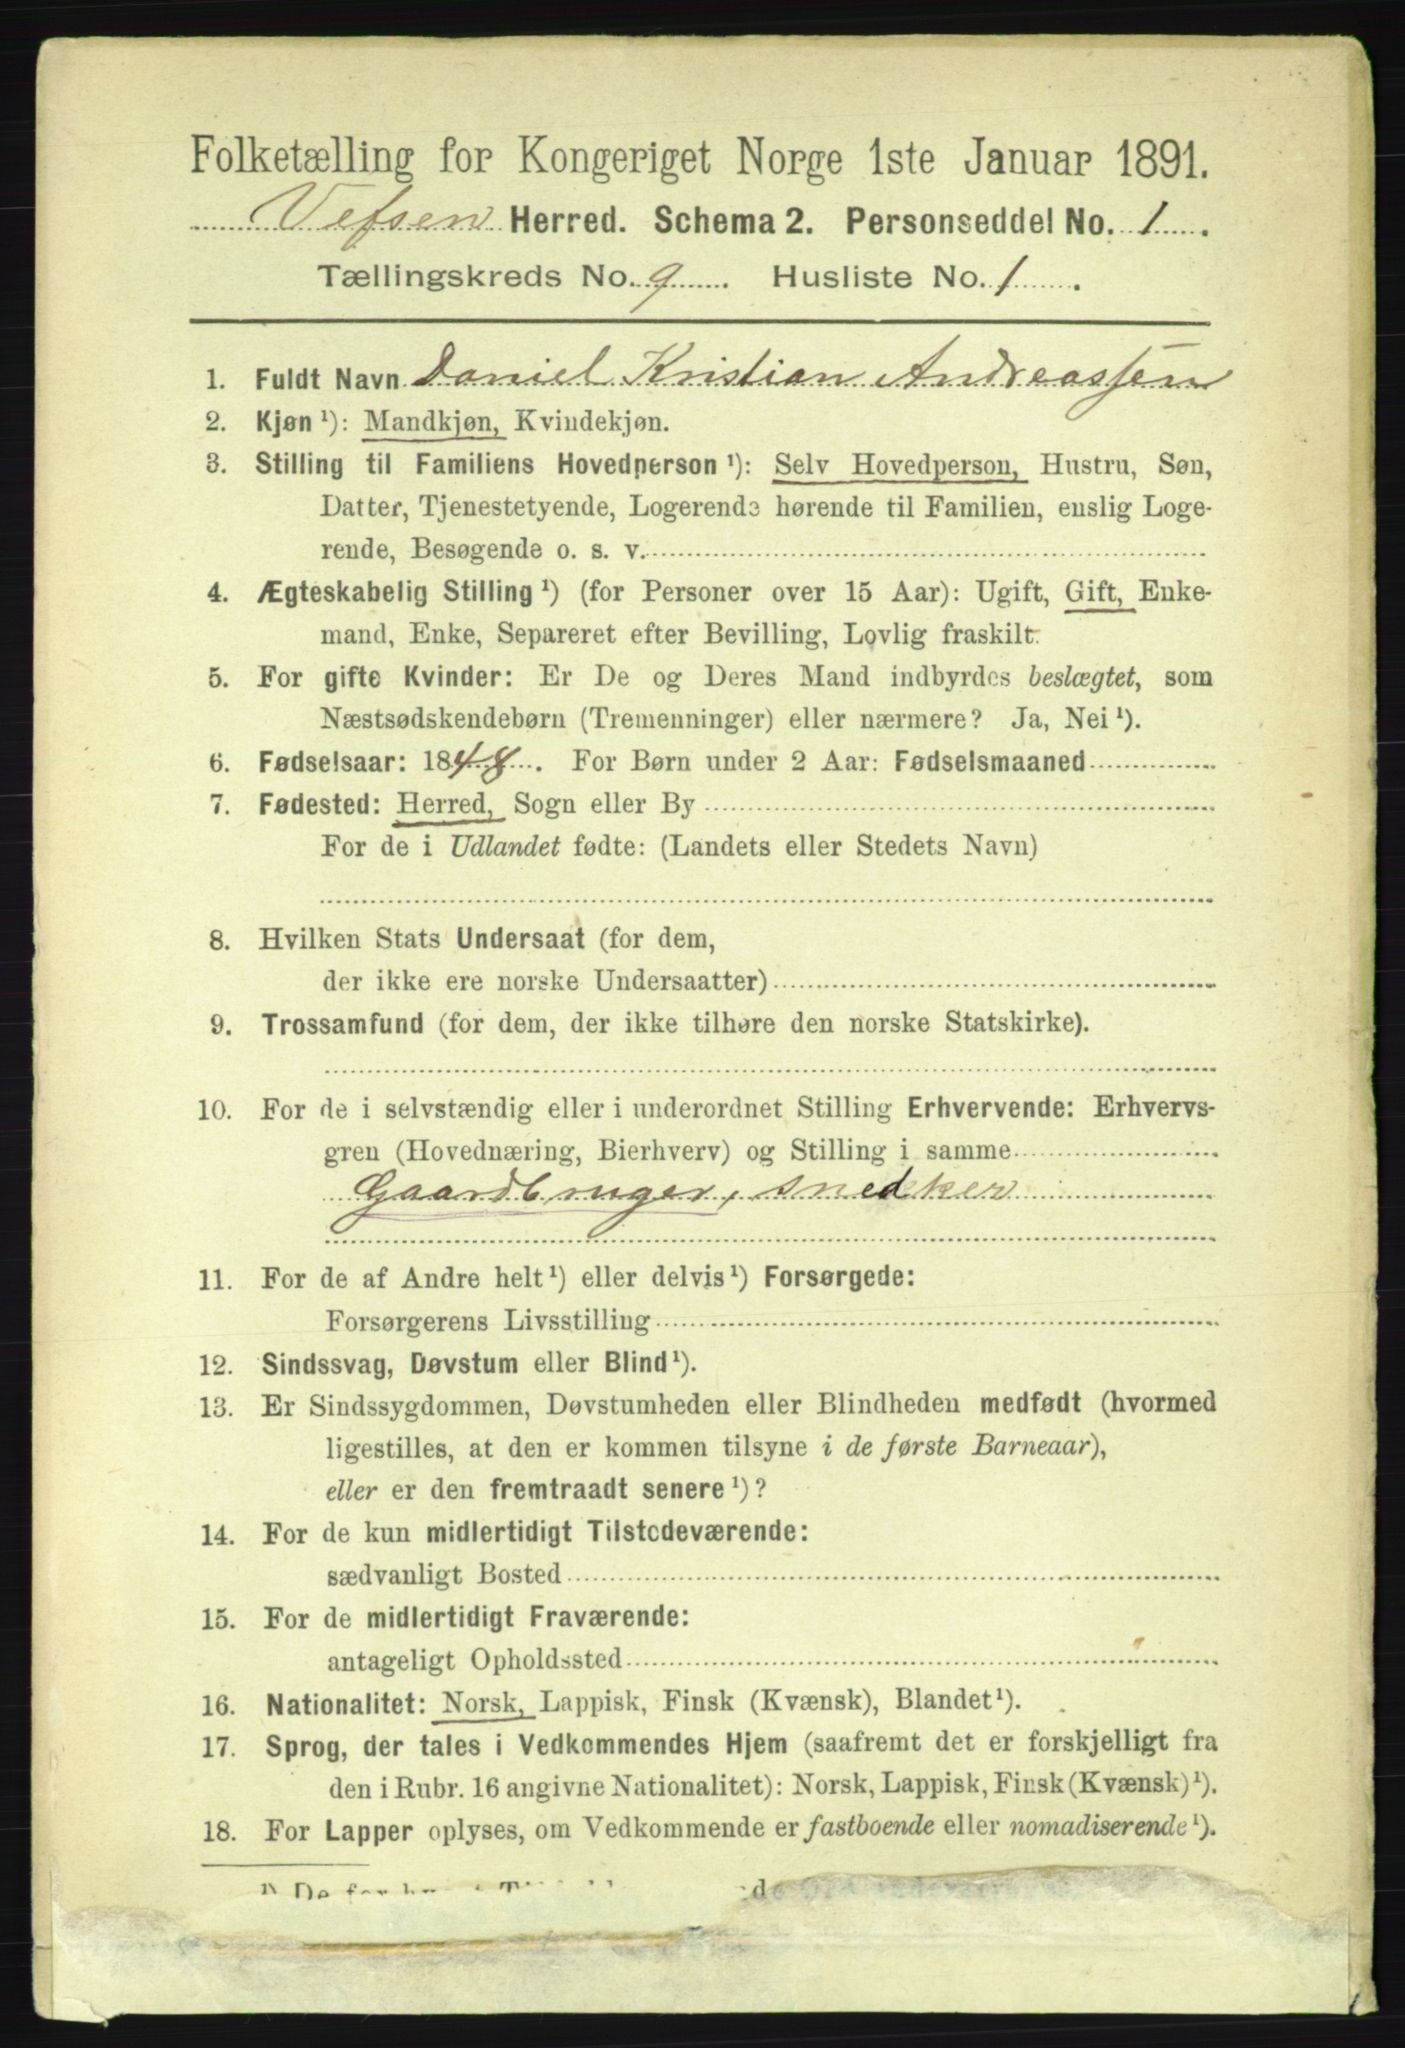 Folketælling for Kongeriget Norge 1ste Januar 1891.
Vefsen Herred. Schema 2. Personseddel No. 1.
Tællingskreds No. 9. Husliste No. 1.
1. Fuldt Navn Daniel Kristian Andreassen
2. Kjøn ¹): Mandkjøn, Kvindekjøn.
3. Stilling til Familiens Hovedperson ¹): Selv Hovedperson, Hustru, Søn,
Datter, Tjenestetyende, Logerende hørende til Familien, enslig Loge-
rende, Besøgende o. s. v.
4. Ægteskabelig Stilling ¹) (for Personer over 15 Aar): Ugift, Gift, Enke-
mand, Enke, Separeret efter Bevilling, Lovlig fraskilt.
5. For gifte Kvinder: Er De og Deres Mand indbyrdes beslægtet, som
Næstsødskendebørn (Tremenninger) eller nærmere? Ja, Nei ¹).
6. Fødselsaar: 1848. For Børn under 2 Aar: Fødselsmaaned
7. Fødested: Herred, Sogn eller By
For de i Udlandet fødte: (Landets eller Stedets Navn)
8. Hvilken Stats Undersaat (for dem,
der ikke ere norske Undersaatter)
9. Trossamfund (for dem, der ikke tilhøre den norske Statskirke).
10. For de i selvstændig eller i underordnet Stilling Erhvervende: Erhvervs-
gren (Hovednæring, Bierhverv) og Stilling i samme
Gaardbruger, snedker
11. For de af Andre helt ¹) eller delvis ¹) Forsørgede:
Forsørgerens Livsstilling
12. Sindssvag, Døvstum eller Blind ¹).
13. Er Sindssygdommen, Døvstumheden eller Blindheden medfødt (hvormed
ligestilles, at den er kommen tilsyne i de første Barneaar),
eller er den fremtraadt senere ¹)?
14. For de kun midlertidigt Tilstedeværende:
sædvanligt Bosted
15. For de midlertidigt Fraværende:
antageligt Opholdssted
16. Nationalitet: Norsk, Lappisk, Finsk (Kvænsk), Blandet ¹).
17. Sprog, der tales i Vedkommendes Hjem (saafremt det er forskjelligt fra
den i Rubr. 16 angivne Nationalitet): Norsk, Lappisk, Finsk (Kvænsk) ¹).
18. For Lapper oplyses, om Vedkommende er fastboende eller nomadiserende ¹).
¹) De for